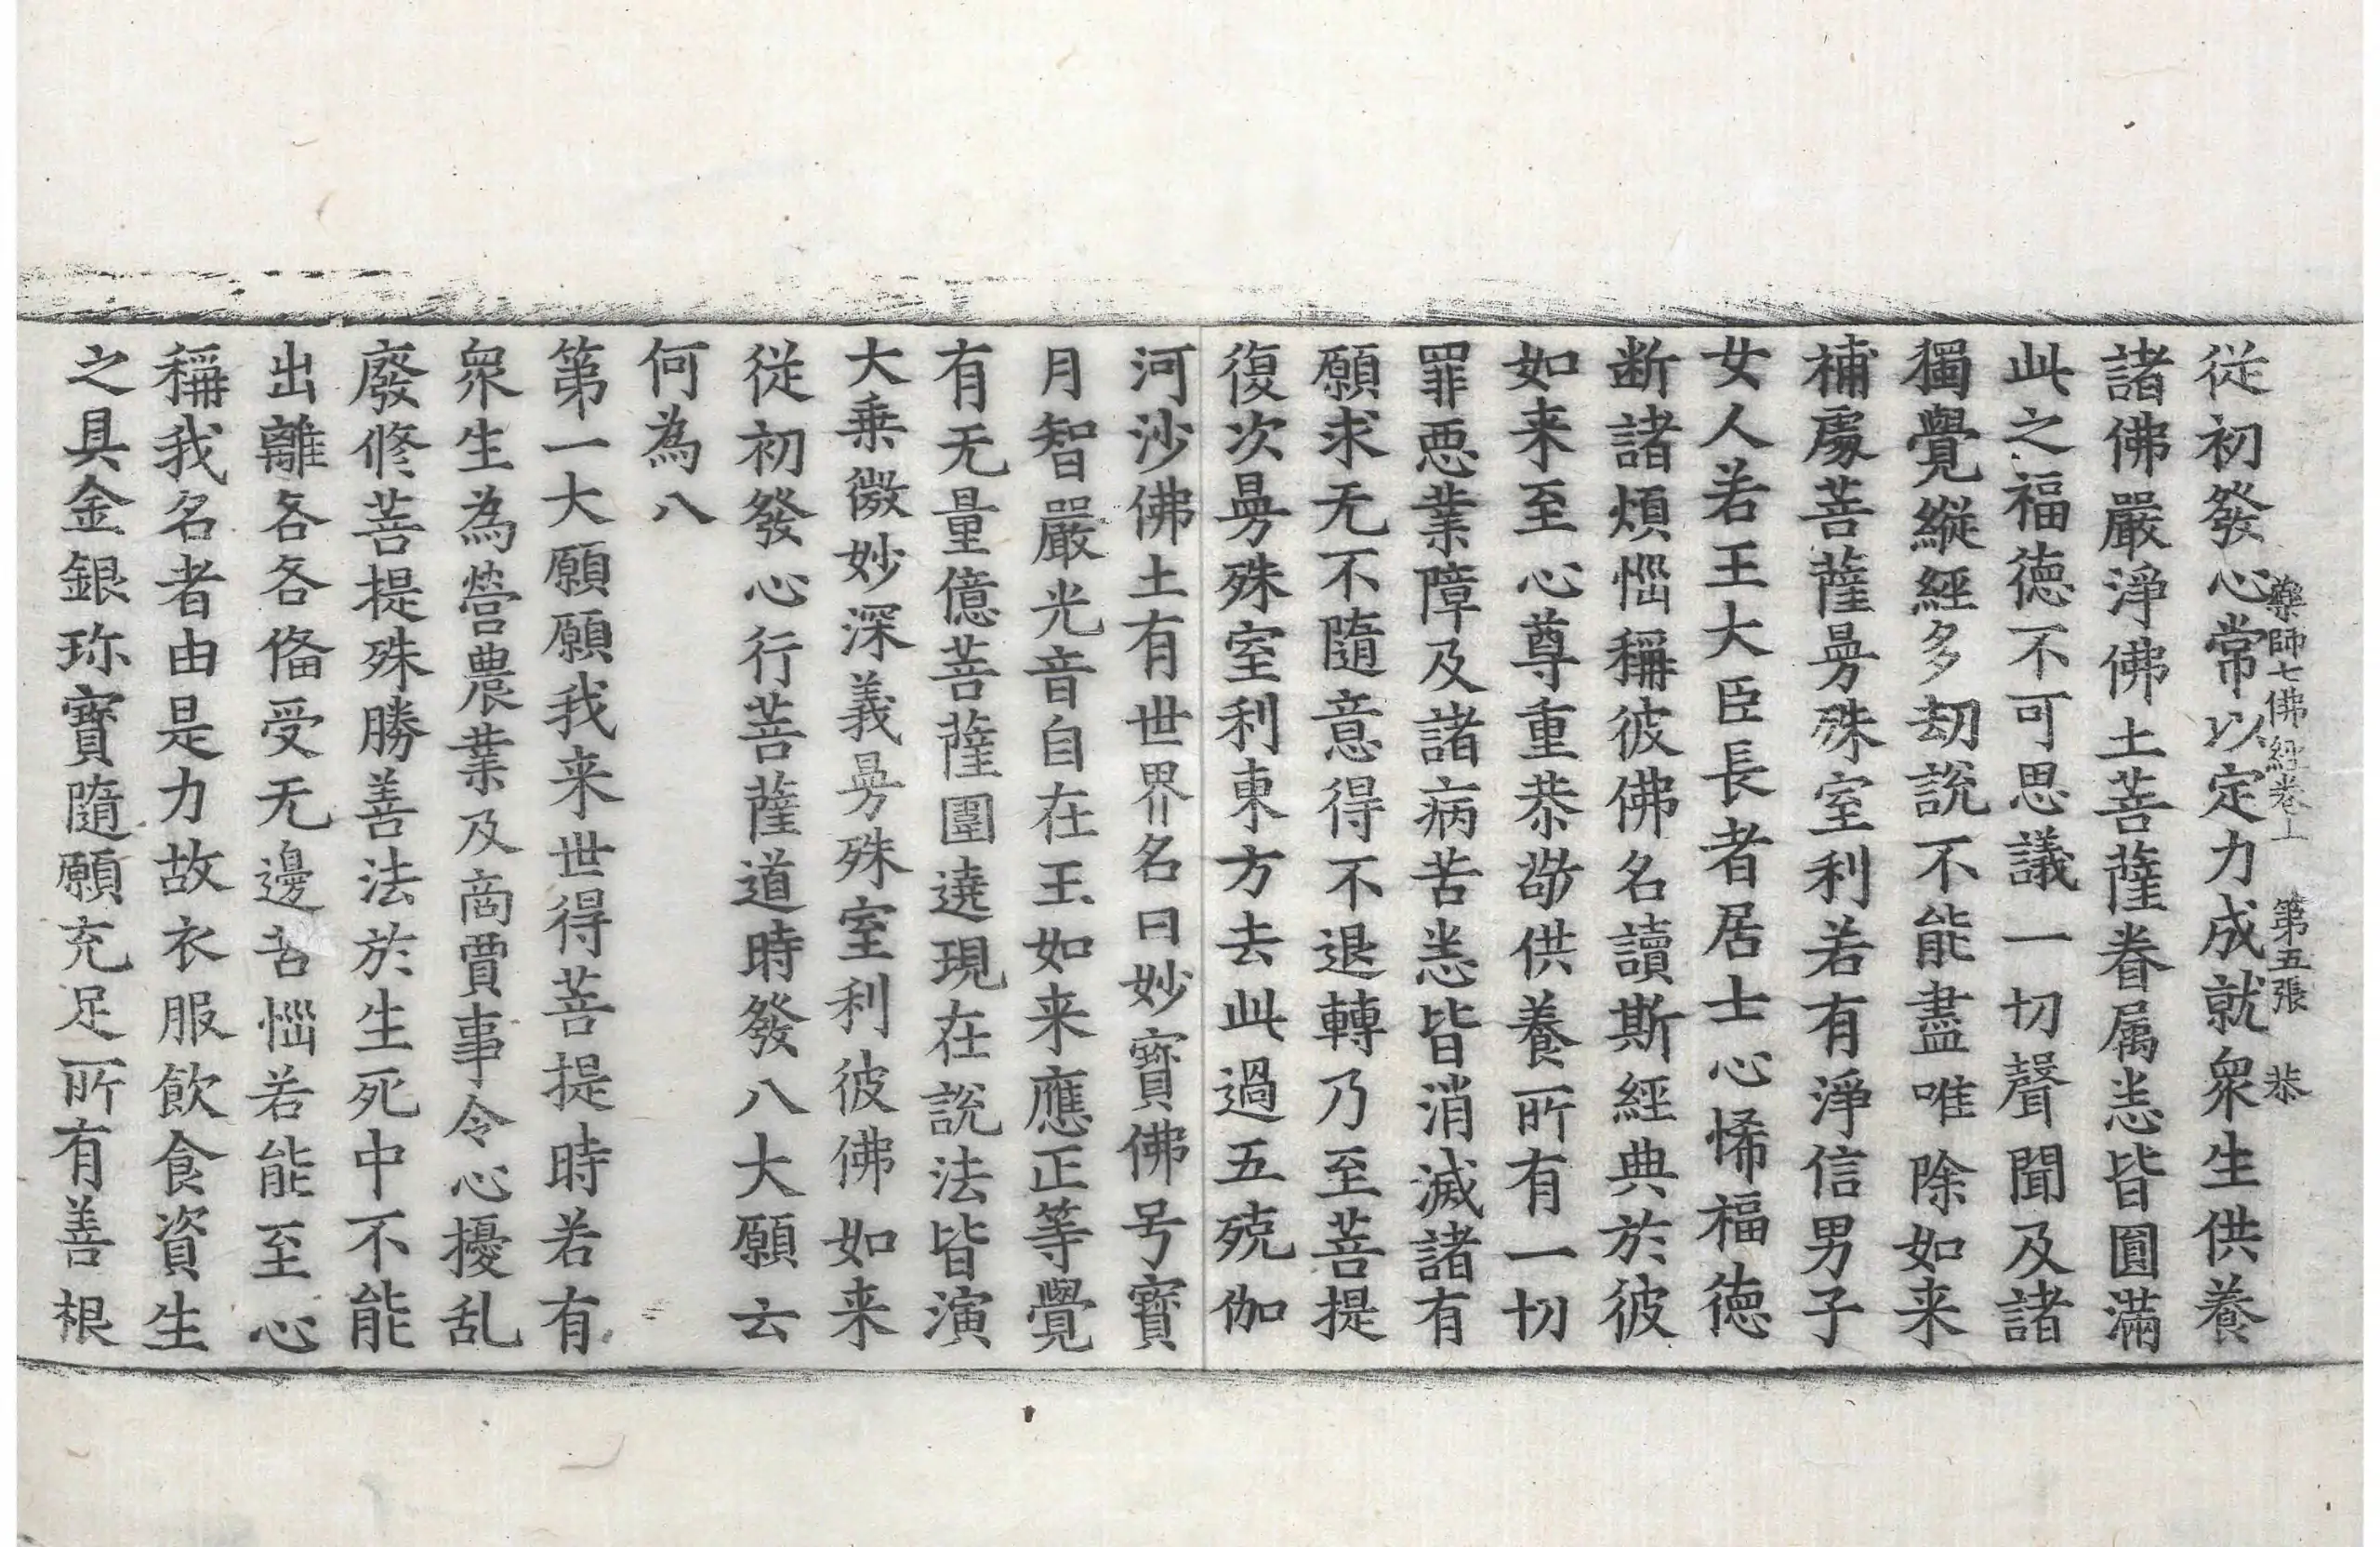 藥師七佛經卷上　第五張　恭
従初發心常以定力成就衆生供養
諸佛嚴淨佛土菩薩眷属悉皆圓滿
此之福徳不可思議一切聲聞及諸
獨覺縱經多劫說不能盡唯除如来
補處菩薩曼殊室利若有淨信男子
女人若王大臣長者居士心悕福徳
断諸煩惱稱彼佛名讀斯經典於彼
如来至心尊重恭敬供養所有一切
罪惡業障及諸病苦悉皆消滅諸有
願求无不隨意得不退轉乃至菩提
復次曼殊室利東方去此過五殑伽
河沙佛土有世界名曰妙寶佛号寶
月智嚴光音自在王如来應正等覺
有无量億菩薩圍遶現在說法皆演
大乗微妙深義曼殊室利彼佛如来
従初發心行菩薩道時發八大願云
何為八
第一大願願我来世得菩提時若有
衆生為營農業及商賈事令心擾乱
廢修菩提殊勝善法於生死中不能
出離各各俻受无邊苦惱若能至心
稱我名者由是力故衣服飲食資生
之具金銀珎寶隨願充足所有善根